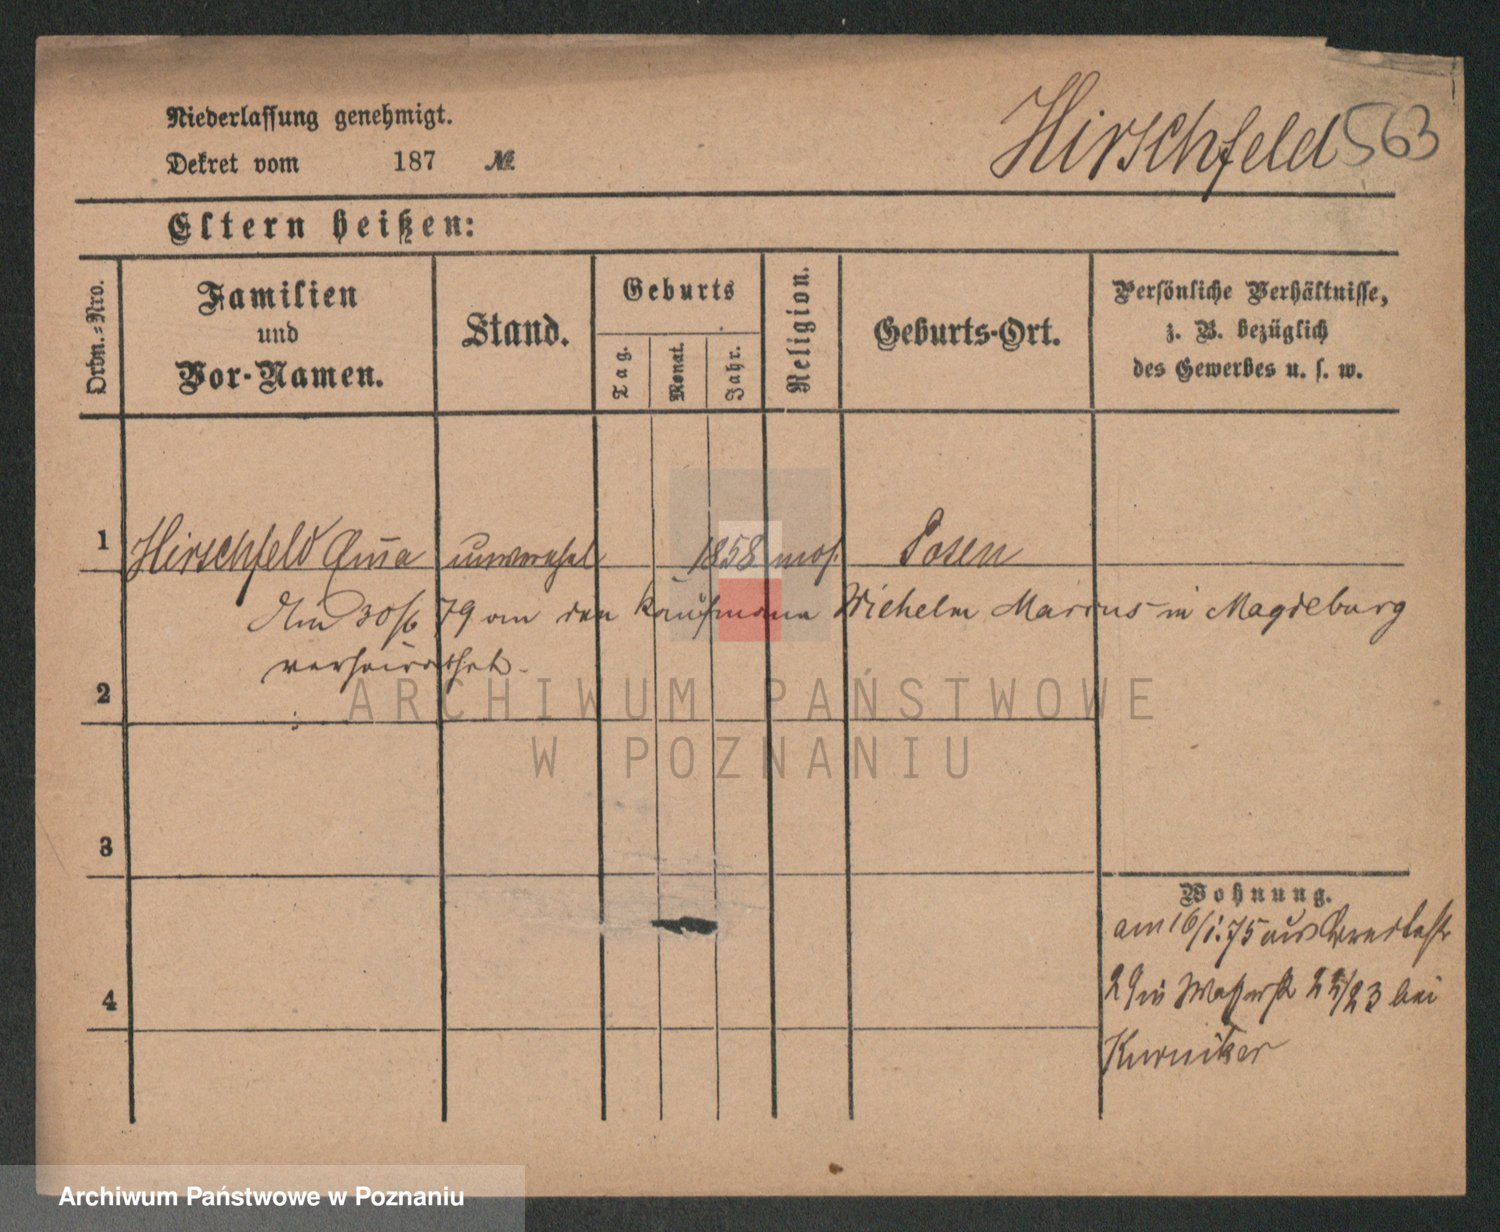 Niederlassung genehmigt.
Dekret vom 187 №
Hirschfeld 563
Eltern heißen:
Ordn.=Nro.
Familien
und
Vor-Namen.
Stand.
Geburts
Tag.
Monat.
Jahr.
Religion.
Geburts-Ort.
Persönliche Verhältnisse,
z. B. bezüglich
des Gewerbes u. s. w.
1 Hirschfeld unverehel 1858 mos. Posen
30/6 79 an den Kaufmann Marcus in Magdeburg
verheirathet.
2
3
4
Wohnung.
am 16/1.75 aus
29 in Wasserstr 22/23 bei
Kurniker
ARCHIWUM PAŃSTWOWE
W POZNANIU
Archiwum Państwowe w Poznaniu